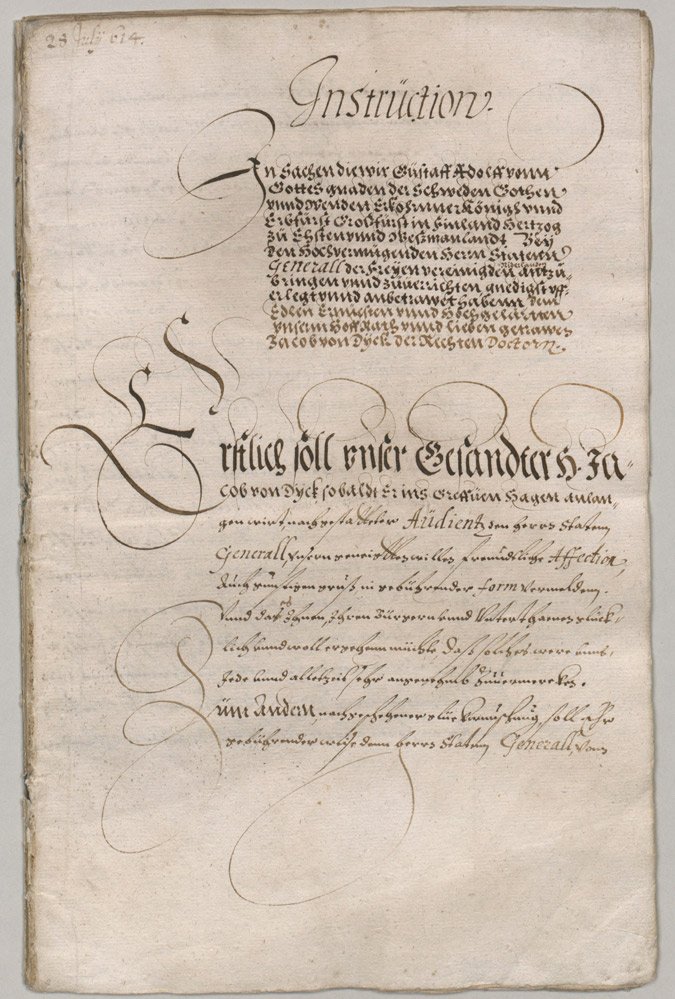 28 July 614.
Instruction.
In Sachen die wir Gustaff Adolff vonn
Gottes gnaden der Schweden Gothen
vnnd Wenden Erkohrner König vnnd
Erbfürst Grosfürst in Finland Hertzog
zu Ehsten vnnd Westmanlandt Bey
den Hochvermügenden Herrn Stateen
Generall der freyen vereinigden antzu-
bringen vnnd zuuerrichten gnedigst vff-
erlegt vnnd anbetrawet habenn dem
Edlen Ernuesten vnnd Hochgelarten
vnserm Hoff Rath vnnd lieben getrawen
Jacob von Dyck der Rechten Doctorn.
Erstlich soll vnser Gesandter H. Ja-
cob von Dyck so baldt Er ins Greffuen Hagen anlan-
gen wirt, nach gestalleter Audientz den herrn Staten
Generall vnsern geneigten willen freundtliche Affection,
Auch günstigen gruß in gebührender form vermelden.
Vnnd das es Ihnen, Ihren Bürgern vnnd Unterthanen glück-
lich vnnd woll ergehenn müchte, daß solches were vnns,
Jede vnnd allezeit sehr angenehmb zuuermercken.
Zum Andern, nach geschehener glückwünschung, soll ehr
gebührender weise denn herrn Staten Generall, vonn